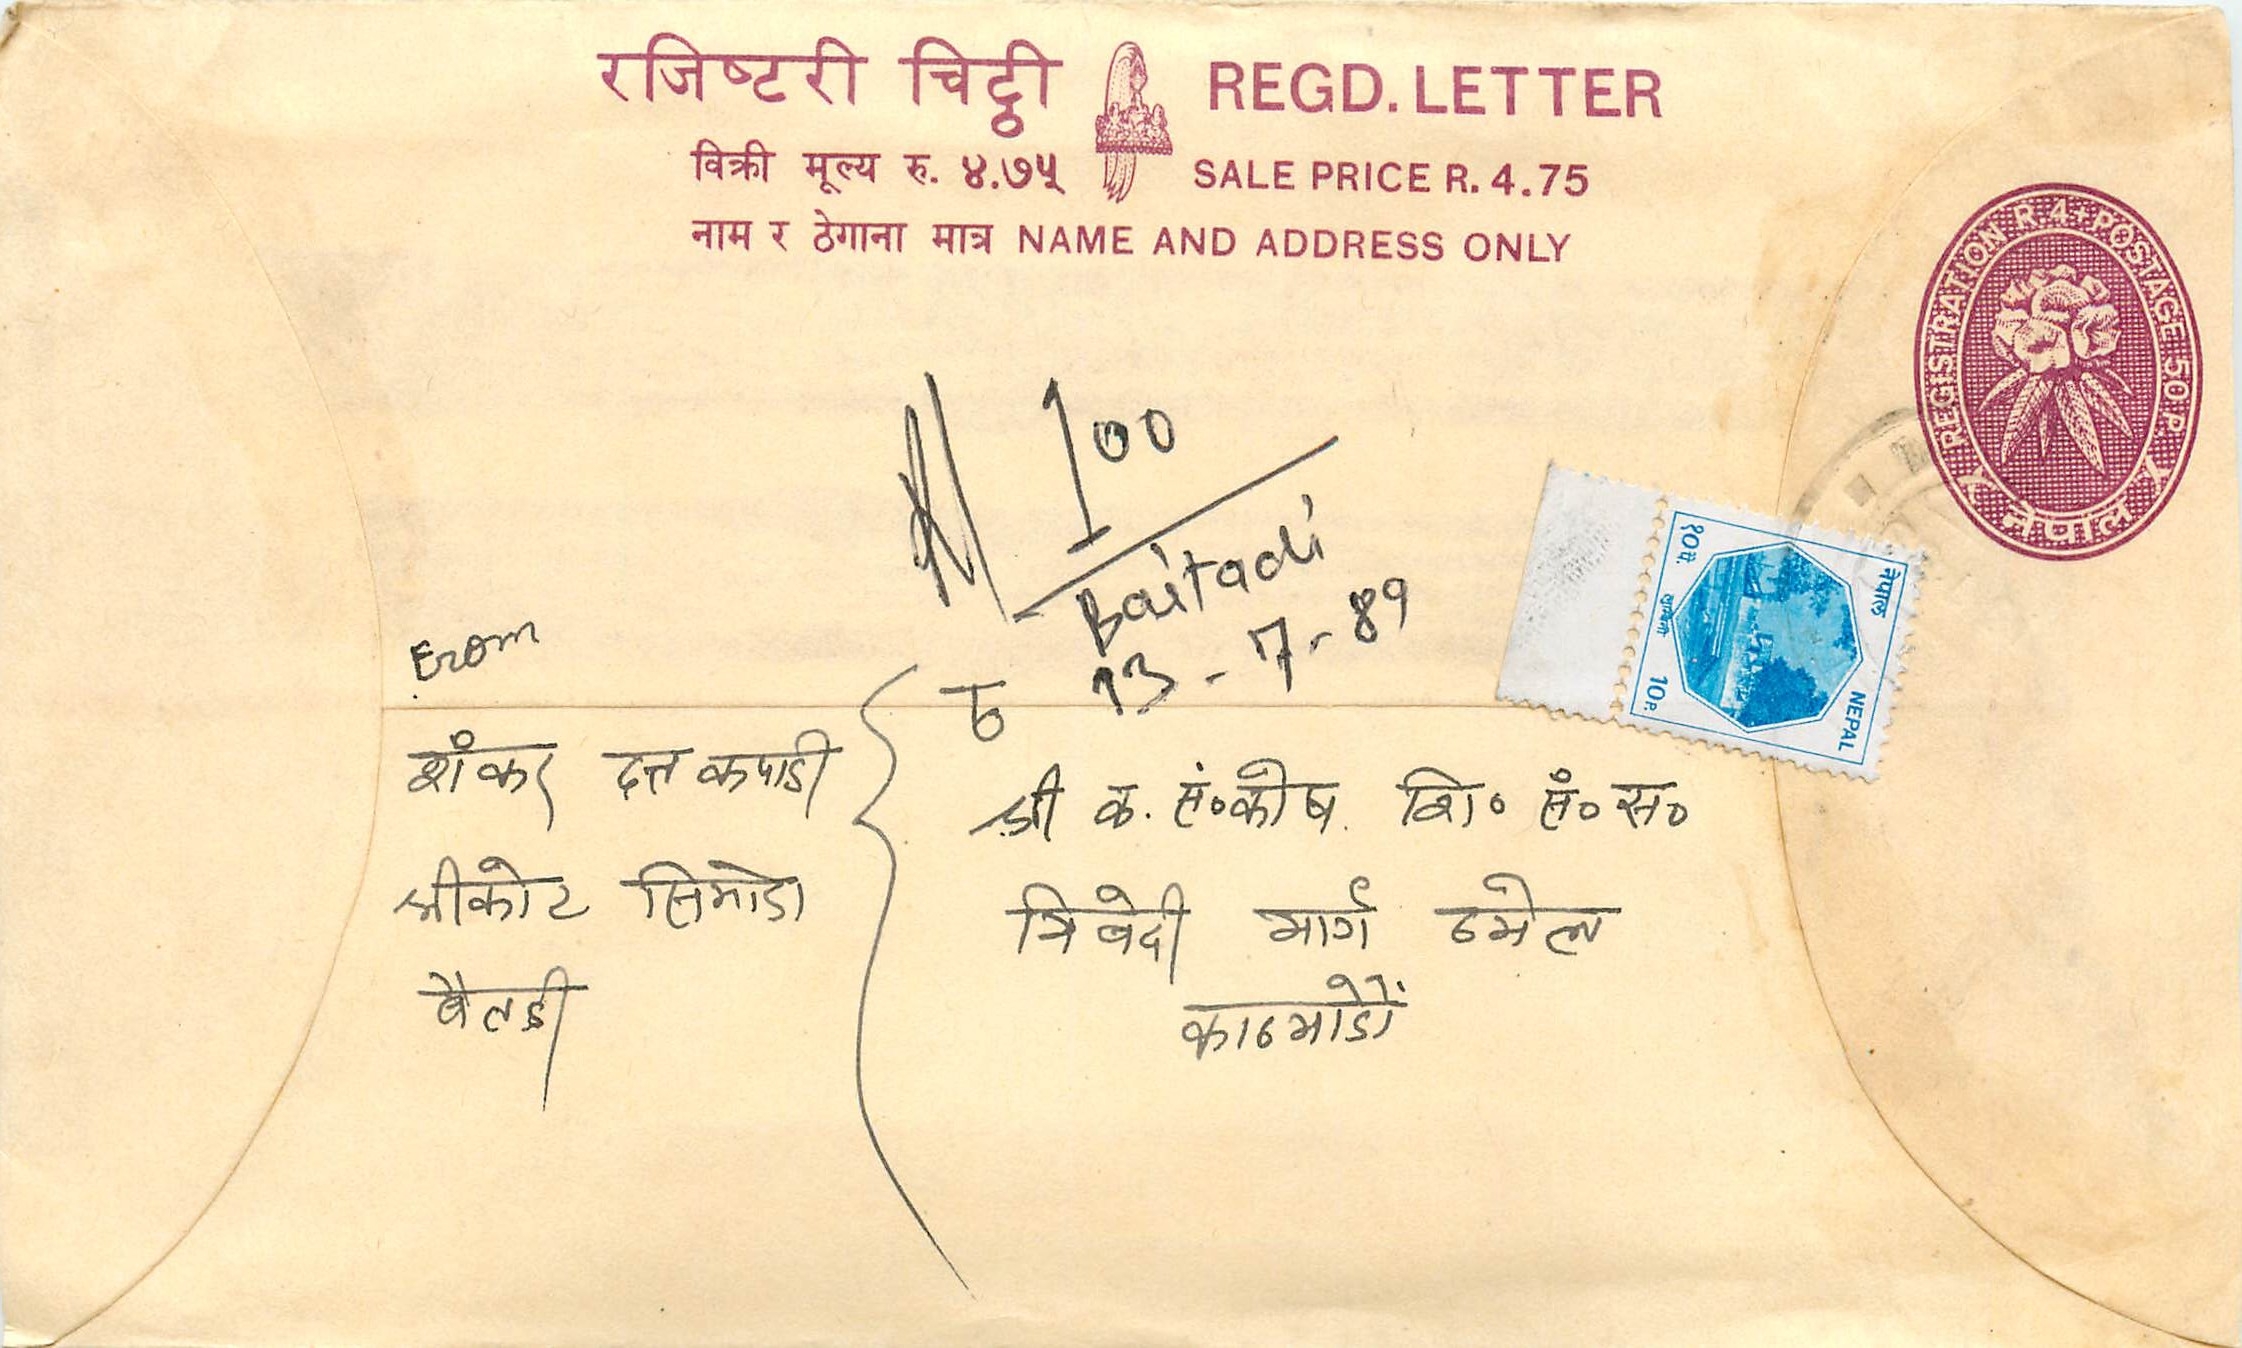 रजिष्टरी चिठ्ठी REGD. LETTER
विक्री मूल्य रु. ४.७५ SALE PRICE R. 4.75
नाम र ठेगाना मात्र NAME AND ADDRESS ONLY
REGISTRATION R. 4+POSTAGE 50 P.
नेपाल
R 100
Baitadi
13-7-89
नेपाल
NEPAL
१०पै.
10P.
From
शंकर दत्त कपाडी
श्रीकोट
बैतडी
श्री क. सं०कोष. शि० सं० स०
त्रिवेदी मार्ग ठमेल
काठमाडौं